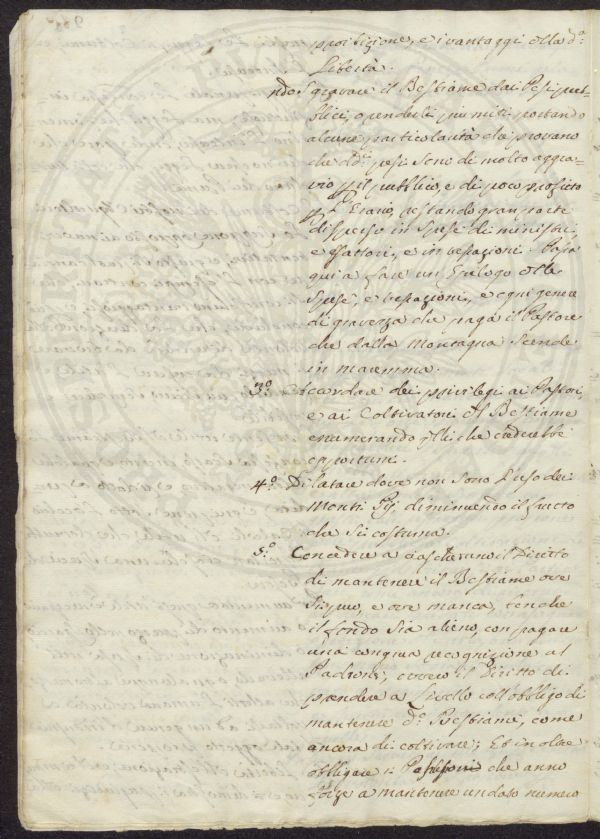 posizione, e i vantaggi della d.a
Libertà.
ndo Sgravare il Bestiame dai Pesi pub=
blici, o renderli più miti portando
alcune particolarità che provano
che dd.i pesi sono di molto aggra-
vio p il pubblico, e di poco profitto
p l'Erario, restando gran parte
disperso in spese di ministri,
e esattori, e in vessazioni. Passa
qui a fare un Epilogo delle
Spese, e vessazioni, e ogni genere
di gravezza che paga il Pastore
che dalla Montagna Scende
in maremma.
3.o Accordare dei privilegi ai Pastori,
e ai Coltivatori del Bestiame
enumerando quelli che crederebbe
opportuni.
4.o Dilatare dove non sono l'uso dei
Monti Pij diminuendo il frutto
che si costuma.
5.o Concedere a ciascheduno il Diritto
di mantenere il Bestiame ove
si spuo, e ove manca, benche
il fondo sia alieno, con pagare
una congrua recognizione al
Padrone; ovvero il Diritto di
prendere a Livello coll'obbligo di
mantenere d.o Bestiame, come
ancora di coltivare; Et inoltre
obbligare i Possessori che anno
forze a mantenere un dato numero